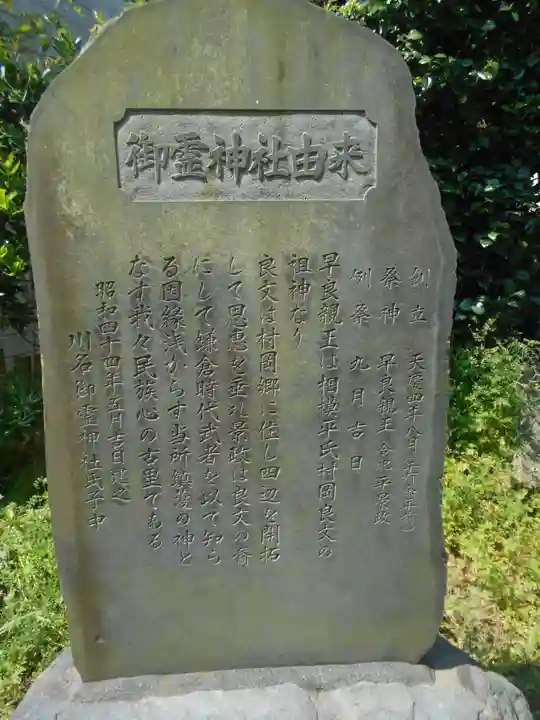 御霊神社由来
創立 天慶四年八月
祭神 早良親王 合祀 平景政
例祭 九月吉日
早良親王は相模平氏村岡良文の
祖神なり
良文は村岡郷に住し四辺を開拓
して恩恵を垂れ景政は良文の裔
にして鎌倉時代武者を以て知ら
る因縁浅からす当所鎮護の神と
なす我々民族心の古里である
昭和四十四年五月吉日建之
川名御霊神社氏子中